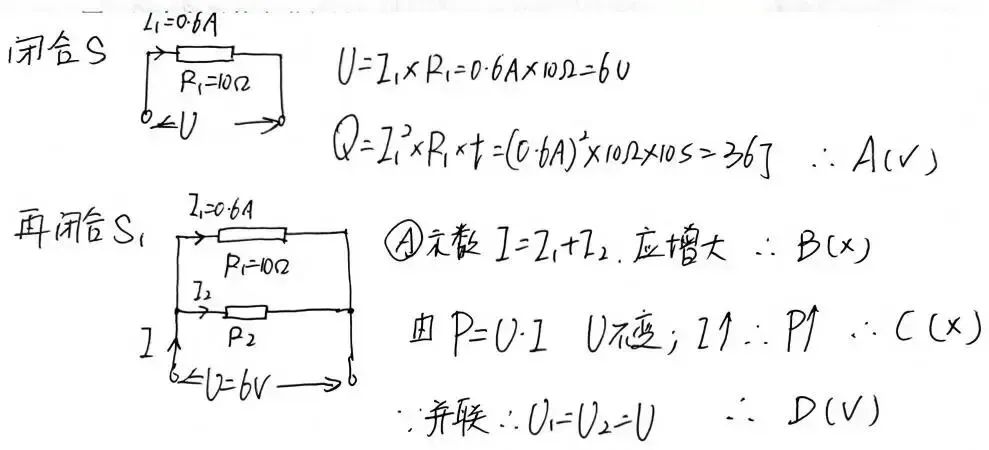 闭合S
I₁=0.6A
R₁=10Ω
U
U=I₁×R₁=0.6A×10Ω=6V
Q=I₁²×R₁×t=(0.6A)²×10Ω×10s=36J ∴ A(√)
再闭合S₁
I₁=0.6A
R₁=10Ω
I₂
R₂
I
U=6V
Ⓐ示数 I=I₁+I₂. 应增大 ∴ B(×)
由 P=U·I U不变; I↑ ∴ P↑ ∴ C(×)
∵并联 ∴ U₁=U₂=U ∴ D(√)